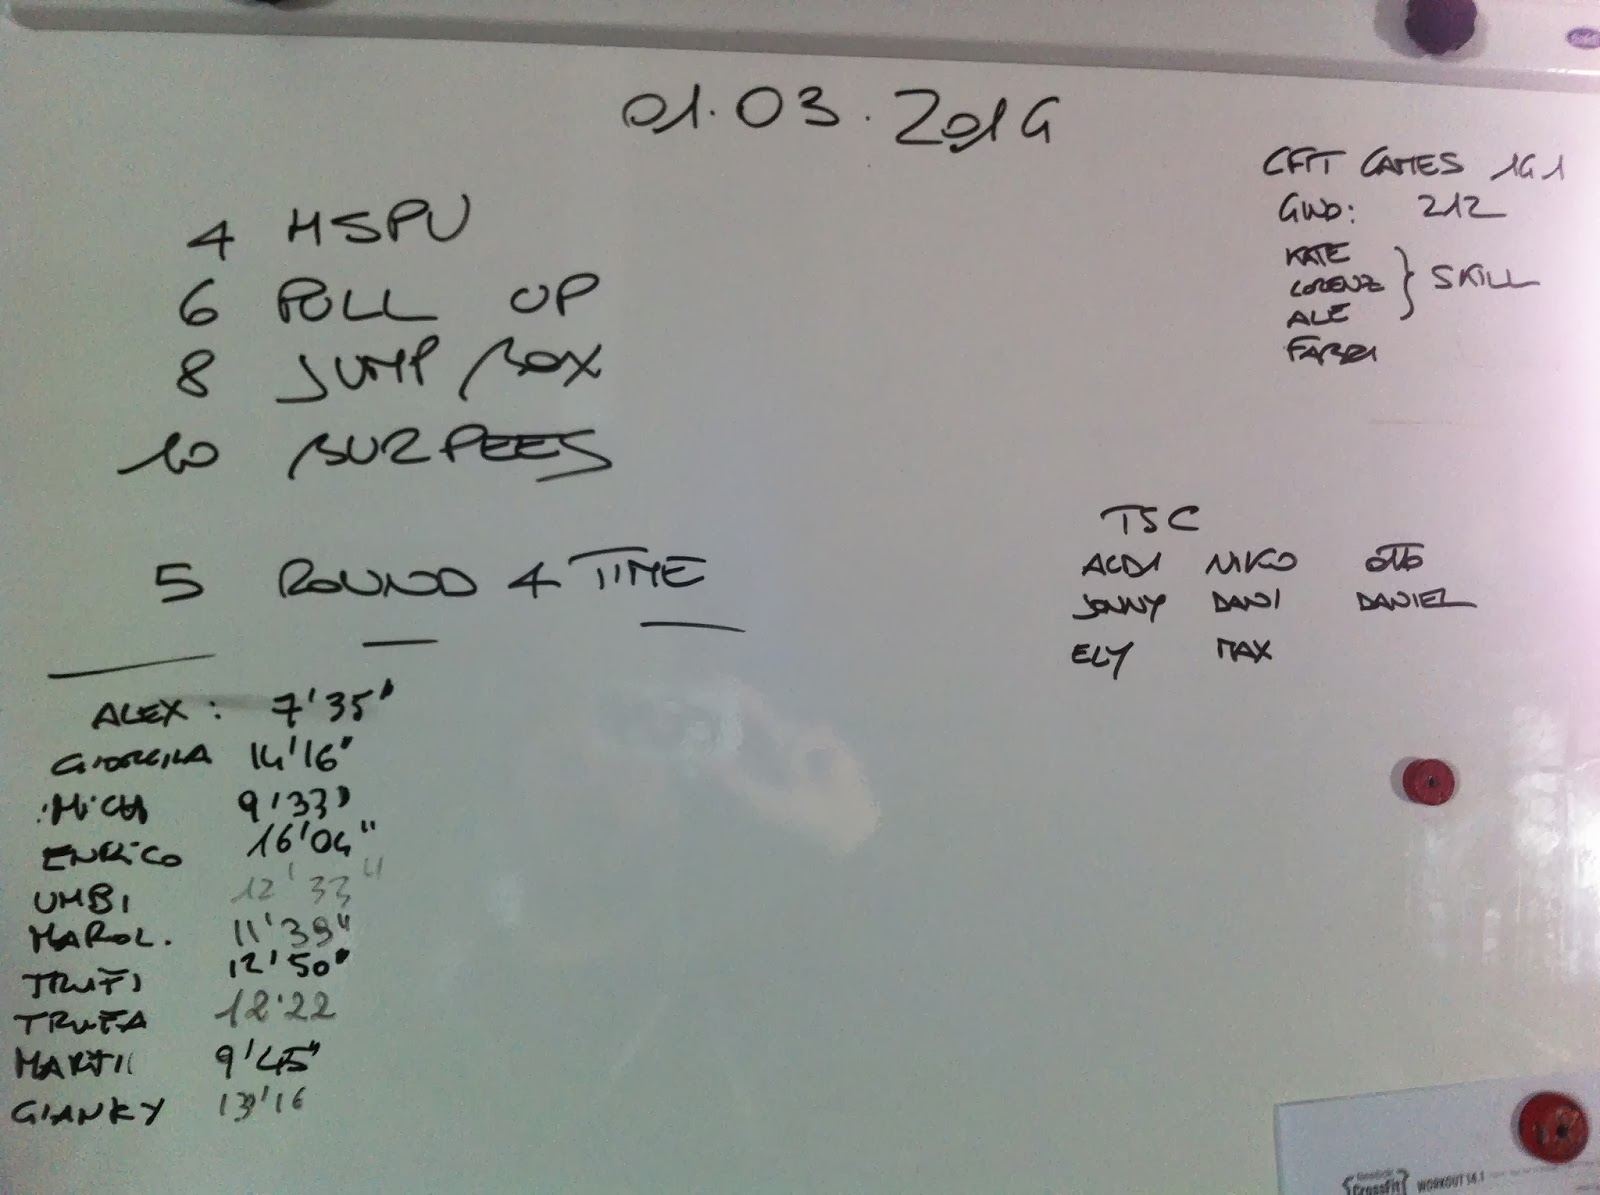 01.03.2014
4 HSPU
6 PULL UP
8 JUMP BOX
10 BURPEES
5 ROUND 4 TIME
ALEX: 7'35"
GIORGIA 14'16"
MICH 9'33"
ENRICO 16'04"
UMBI 12'33"
MAROL. 11'39"
TRUFI 12'50"
TRUFA 12'22
MARTI 9'45"
GIANKY 13'16
CFIT GAMES 14.1
GWD: 212
KATE
LORENZ } SKILL
ALE
FABRI
TSC
ALDI NIKO OTTO
JONNY DANI DANIEL
ELY MAX
CrossFit WORKOUT 14.1